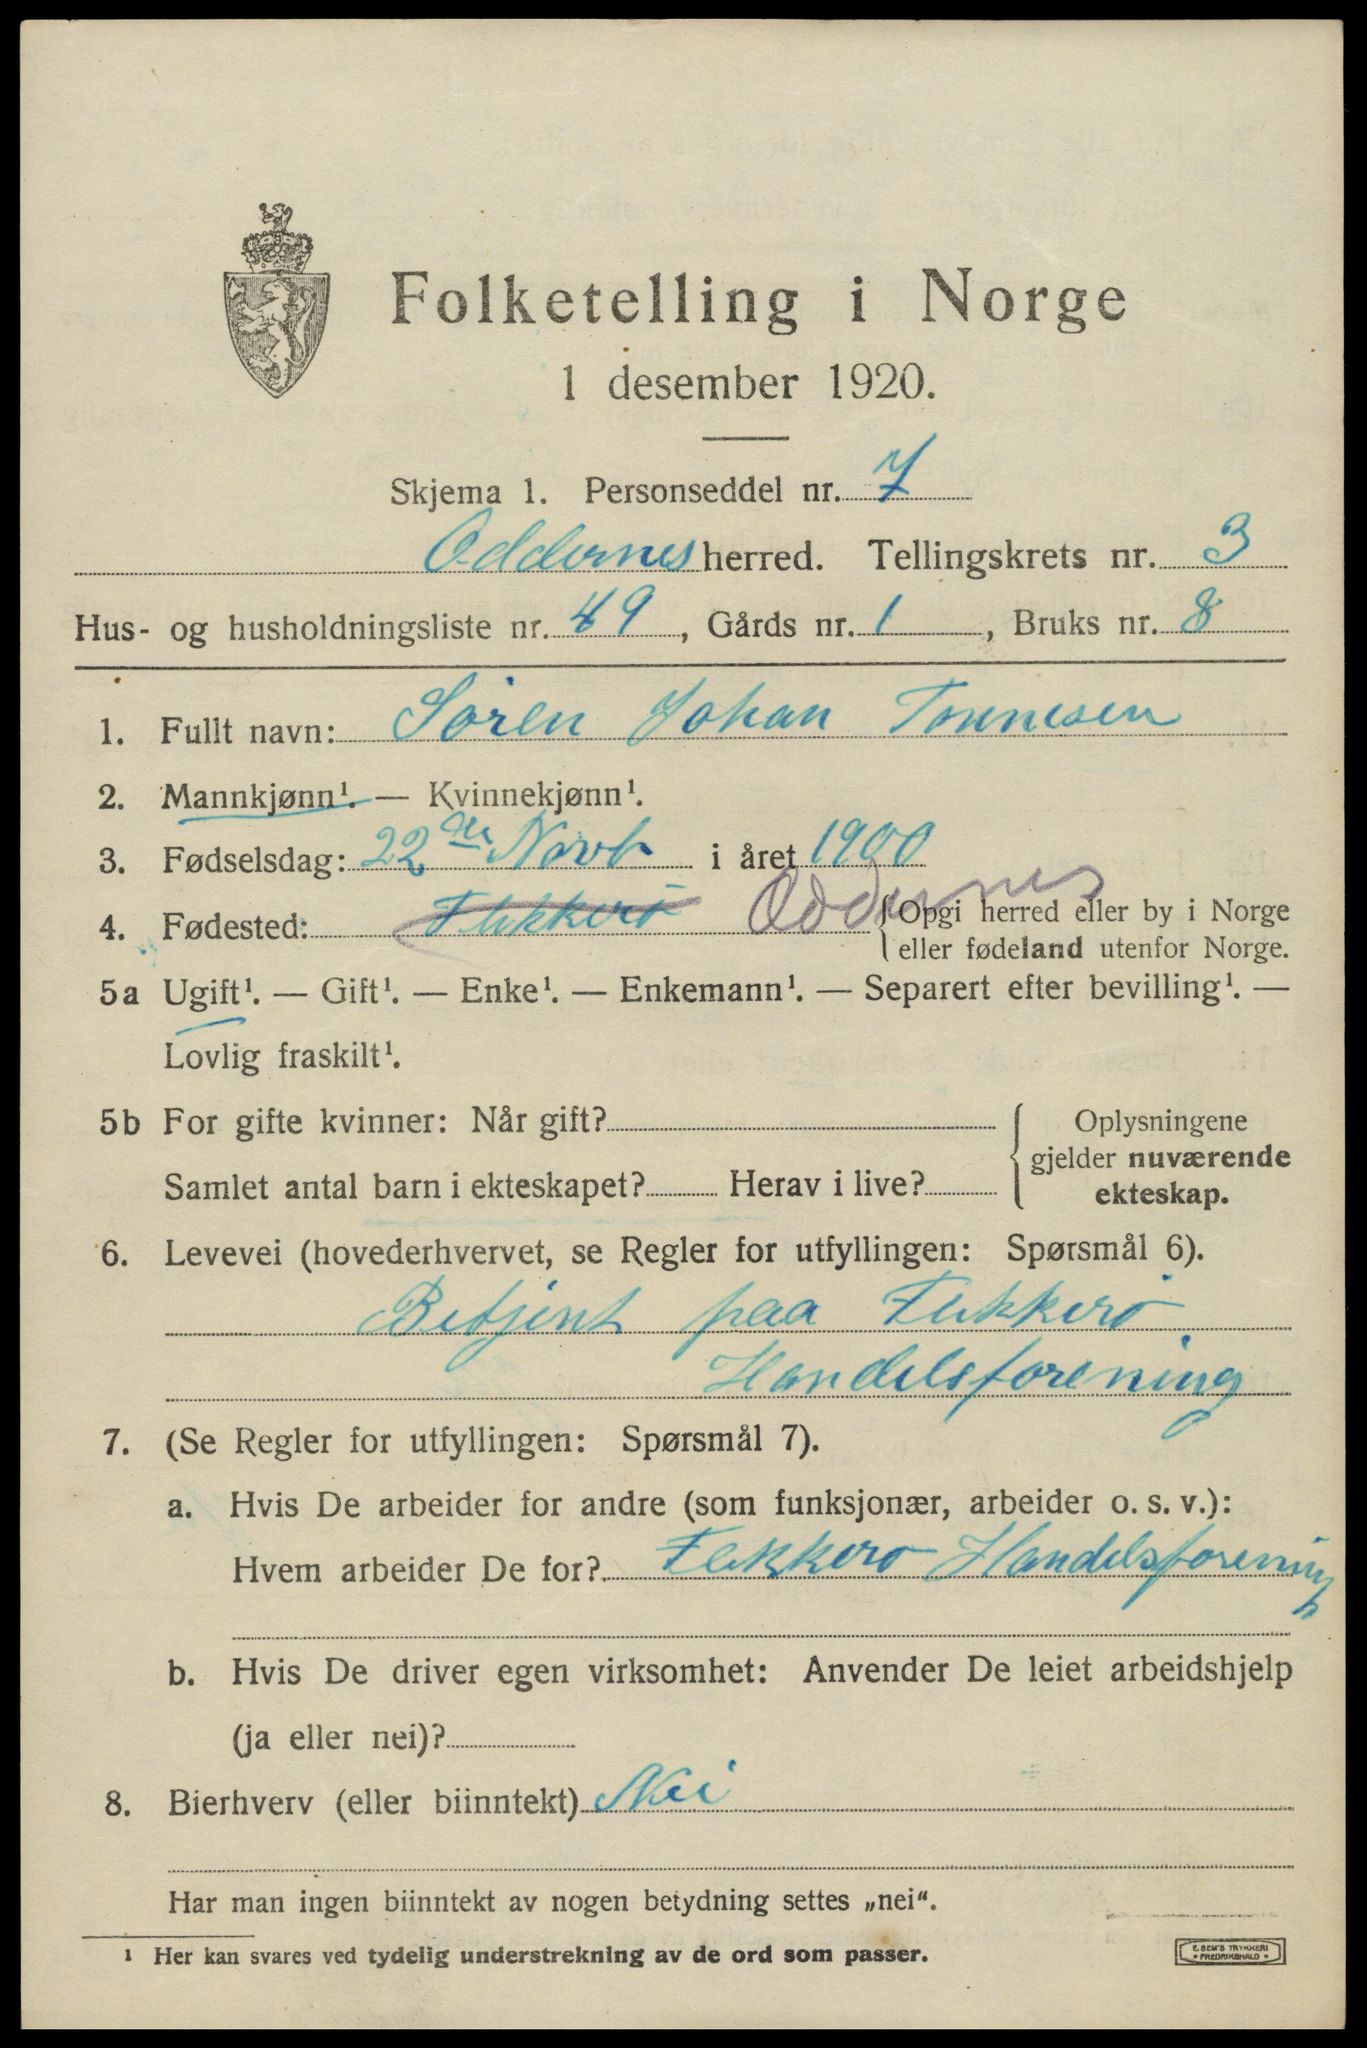 Folketelling i Norge
1 desember 1920.
Skjema 1. Personseddel nr. 7
Oddernes herred. Tellingskrets nr. 3
Hus- og husholdningsliste nr. 49, Gårds nr. 1, Bruks nr. 8
1. Fullt navn: Sören Johan Tønnesen
2. Mannkjønn¹. — Kvinnekjønn¹.
3. Fødselsdag: 22 de Novb i året 1900
4. Fødested: Flekkerö Oddernes {Opgi herred eller by i Norge
eller fødeland utenfor Norge.
5a Ugift¹. — Gift¹. — Enke¹. — Enkemann¹. — Separert efter bevilling¹. —
Lovlig fraskilt¹.
5b For gifte kvinner: Når gift? Oplysningene
gjelder nuværende
Samlet antal barn i ekteskapet? Herav i live? ekteskap.
6. Levevei (hovederhvervet, se Regler for utfyllingen: Spørsmål 6).
Betjent paa Flekkerö
Handelsforening
7. (Se Regler for utfyllingen: Spørsmål 7).
a. Hvis De arbeider for andre (som funksjonær, arbeider o. s. v.):
Hvem arbeider De for? Flekkerö Handelsforening
b. Hvis De driver egen virksomhet: Anvender De leiet arbeidshjelp
(ja eller nei)?
8. Bierhverv (eller biinntekt) Nei
Har man ingen biinntekt av nogen betydning settes „nei“.
¹ Her kan svares ved tydelig understrekning av de ord som passer.
E. SEM'S TRYKKERI
• FREDRIKSHALD •